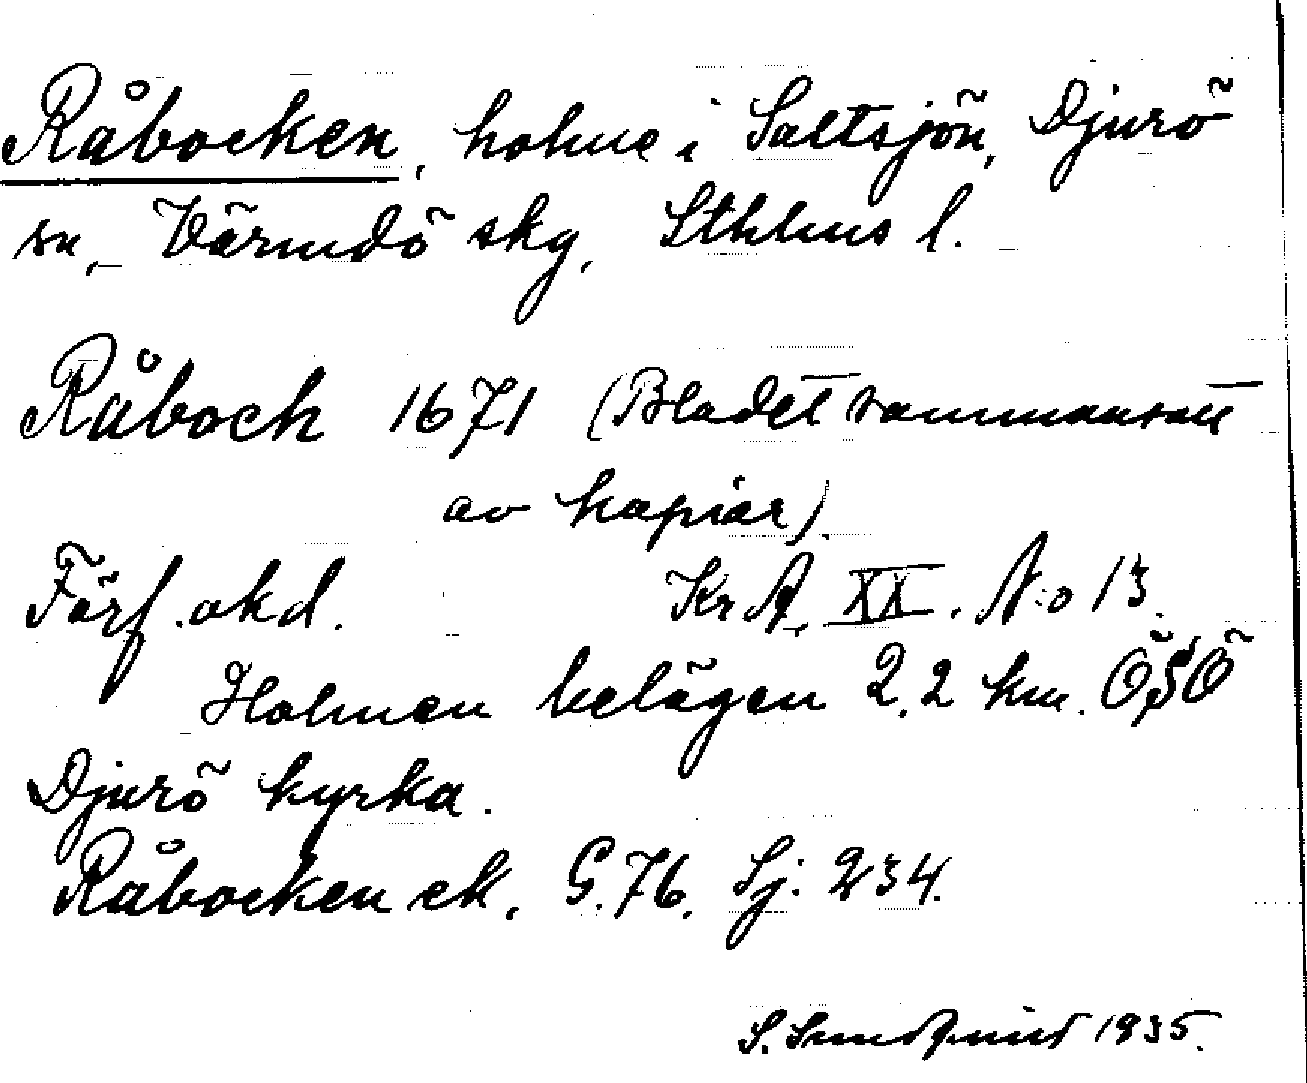 Råbocken, holme i Saltsjön, Djurö
sn, Värmdö skg, Sthlms l.
Råboch 1671 (Bladet sammansatt
av kopior).
Förf. okd. KrA, XX. N:o 13.
Holmen belägen 2,2 km. ÖSÖ
Djurö kyrka.
Råbocken ek. G. 76. Sj. 234.
S. Sundqvist 1935.